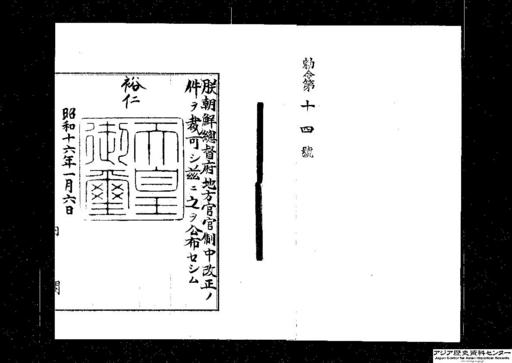 勅令第十四號
朕朝鮮總督府地方官官制中改正ノ
件ヲ裁可シ茲ニ之ヲ公布セシム
裕仁
天皇
御璽
昭和十六年一月六日
内閣
アジア歴史資料センター
Japan Center for Asian Historical Records